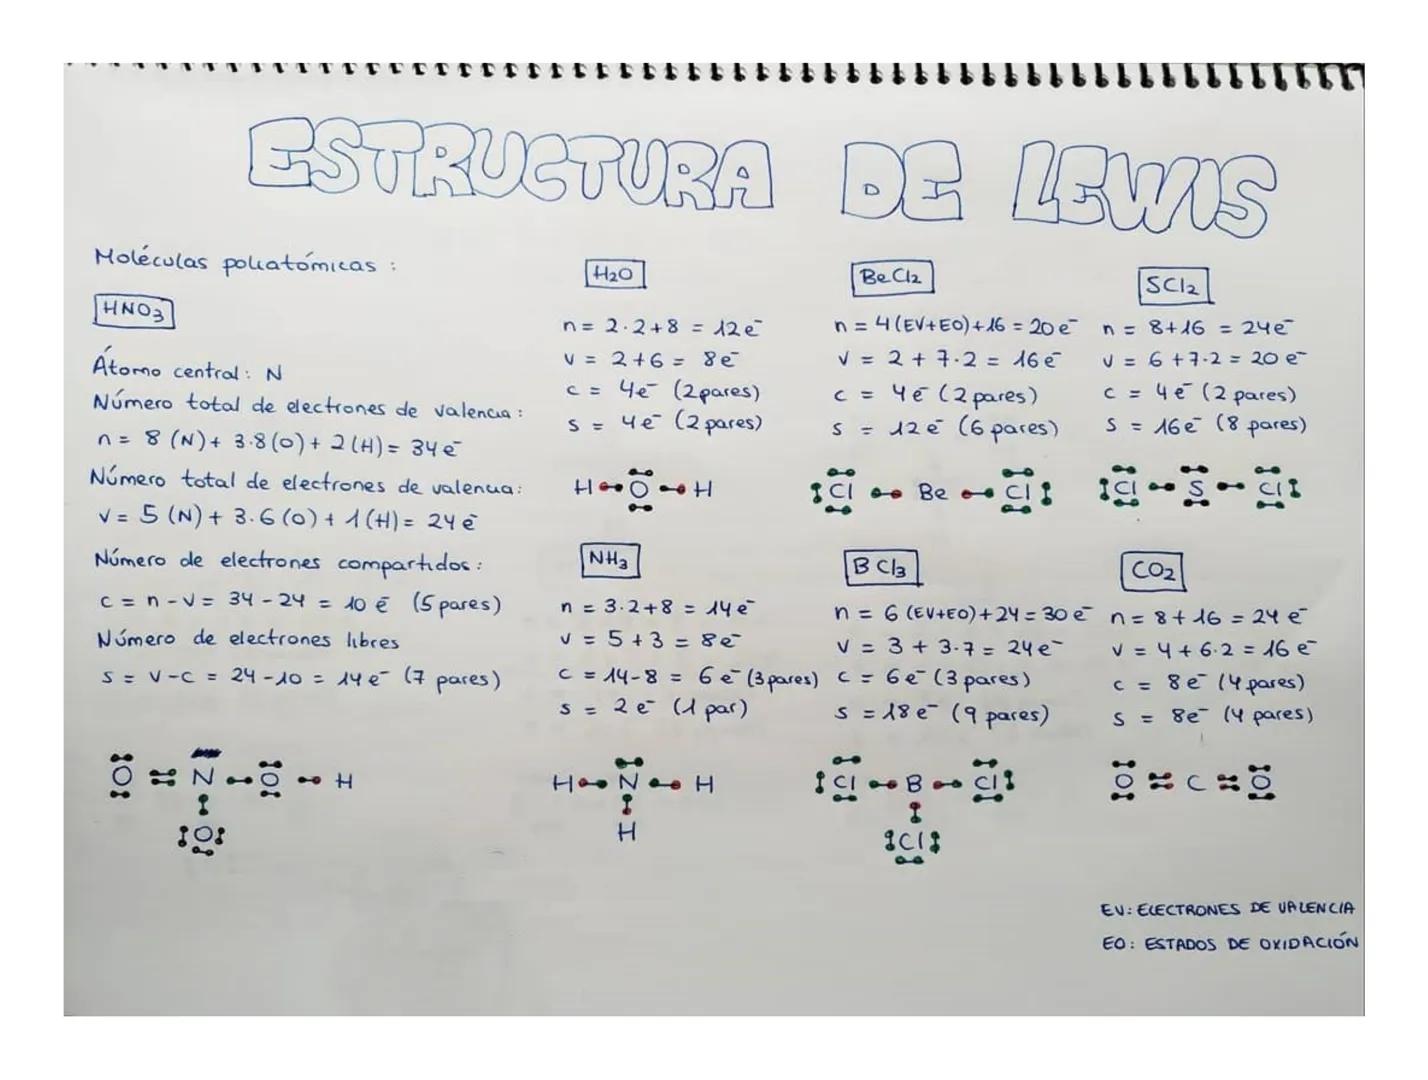 ESTRUCTURA DE LEWIS
Moléculas poliatómicas :
HNO3
Átomo central: N
Número total de electrones de valencia :
n = 8 (N) + 3.8 (O) + 2 (H) = 34 e⁻
Número total de electrones de valencia:
v = 5 (N) + 3.6 (O) + 1 (H) = 24 e⁻
Número de electrones compartidos:
c = n - v = 34 - 24 = 10 e⁻ (5 pares)
Número de electrones libres
s = v - c = 24 - 10 = 14 e⁻ (7 pares)
O N O H
O
H2O
n = 2·2+8 = 12e⁻
v = 2+6 = 8e⁻
c = 4e⁻ (2 pares)
s = 4e⁻ (2 pares)
H O H
NH3
n = 3·2+8 = 14e⁻
v = 5+3 = 8e⁻
c = 14-8 = 6e⁻ (3 pares)
s = 2e⁻ (1 par)
H N H
H
BeCl2
n = 4 (EV+EO) + 16 = 20e⁻
v = 2 + 7·2 = 16e⁻
c = 4e⁻ (2 pares)
s = 12e⁻ (6 pares)
Cl Be Cl
BCl3
n = 6 (EV+EO) + 24 = 30e⁻
v = 3 + 3·7 = 24e⁻
c = 6e⁻ (3 pares)
s = 18e⁻ (9 pares)
Cl B Cl
Cl
SCl2
n = 8+16 = 24e⁻
v = 6+7·2 = 20 e⁻
c = 4e⁻ (2 pares)
s = 16e⁻ (8 pares)
Cl S Cl
CO2
n = 8+16 = 24 e⁻
v = 4+6·2 = 16 e⁻
c = 8e⁻ (4 pares)
s = 8e⁻ (4 pares)
O C O
EV: ELECTRONES DE VALENCIA
EO: ESTADOS DE OXIDACIÓN